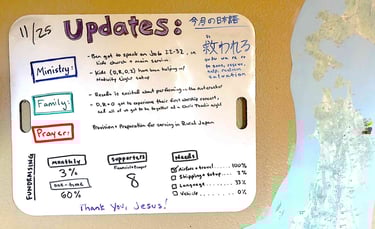 11/25
Updates:
今月の日本語
救われる
su ku wa re ru
to save, rescue,
help, redeem
salvation
Ministry:
- Ben got to speak on Job 22-32, in
kids church + main service
- Kids (D,R,O,Z) have been helping w/
nativity light setup
Family:
- is excited about performing in the nutcracker
- D,R+O got to experience their first worship concert,
and all of us got to be together at a Chris Tomlin night
Prayer:
Provision + Preparation for serving in Rural Japan
FUNDRAISING
monthly
3%
one-time
60%
supporters
8
Needs
Airfare + travel.....100%
Shipping + setup....3%
Language.....33%
Vehicle.....0%
Thank you, Jesus!